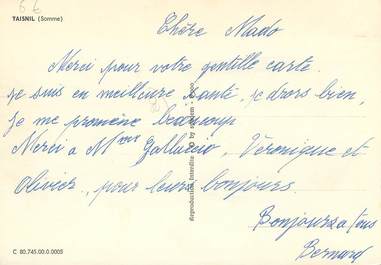 6 €
TAISNIL (Somme)
Chère Mado
Merci pour votre gentille carte.
je suis en meilleure santé, je dors bien,
je me promène beaucoup
Merci à Mme Galluccio, Véronique et
Olivier, pour leurs bonjours.
Bonjours à tous
Bernard
C 80.745.00.0.0005
Reproduction Interdite